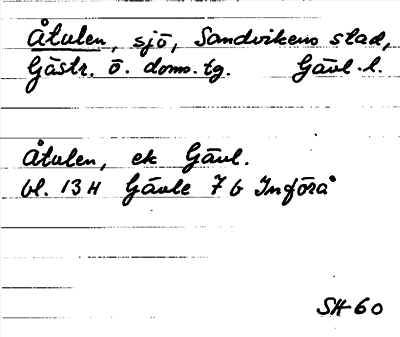 Åtulen, sjö, Sandvikens stad,
Gästr. ö. doms.tg. Gävl. l.
Åtulen, ek Gävl.
bl. 13 H Gävle 7 b Införd
SH 60